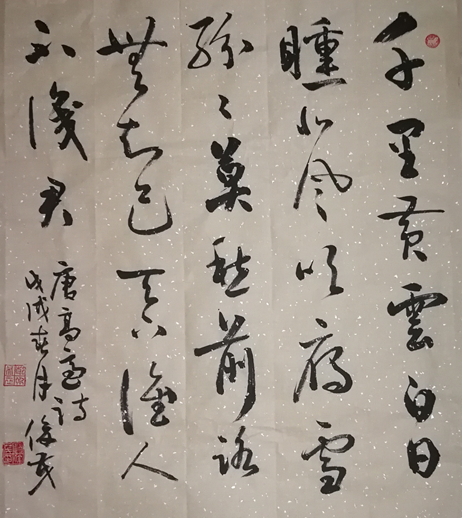 千里黄雲白日
曛北風吹雁雪
紛〻莫愁前路
無知己天下誰人
不識君
唐高適詩
戊戌春月